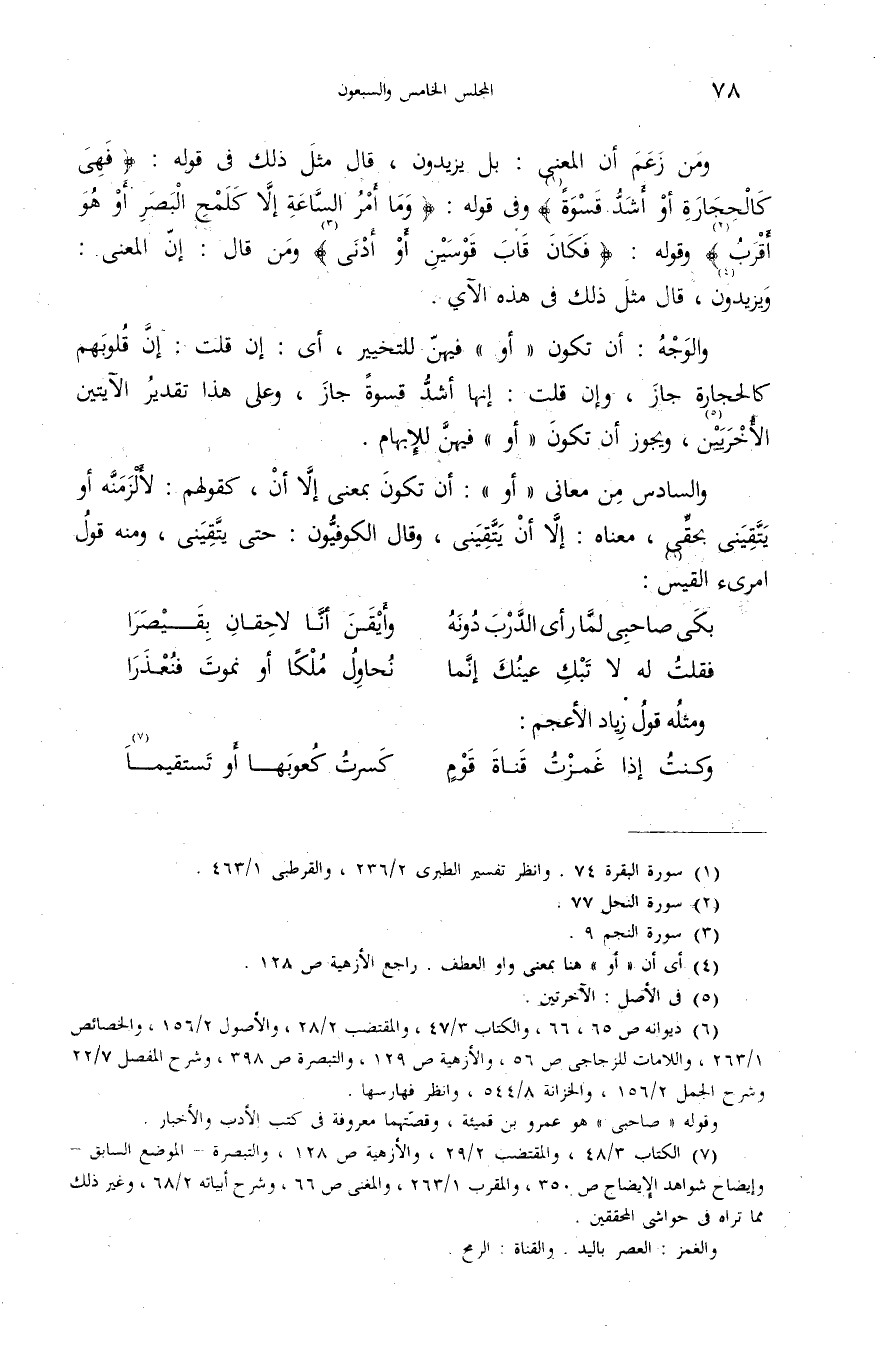 ٧٨ المجلس الخامس والسبعون
ومَن زَعَمَ أن المعنى : بل يزيدون ، قال مثلَ ذلك فى قوله : ﴿ فَهِىَ
كَالْحِجَارَةِ أوْ أَشَدُّ قَسْوَةً ﴾(١) وفى قوله : ﴿ وَمَا أَمْرُ السَّاعَةِ إلَّا كَلَمْحِ الْبَصَرِ أَوْ هُوَ
أَقْرَبُ ﴾(٢) وقوله : ﴿ فَكَانَ قَابَ قَوْسَيْنِ أَوْ أَدْنَى ﴾(٣) ومَن قال : إنّ المعنى :
وَيزيدونَ(٤) ، قال مثلَ ذلك فى هذه الآي .
والوَجْهُ : أن تكون « أو » فيهنّ للتخيير ، أى : إن قلت : إنَّ قُلوبَهم
كالحجارة جازَ ، وإن قلت : إنها أشدُّ قسوةً جازَ ، وعلى هذا تقديرُ الآيتين
الأُخْرَيَيْن(٥) ، ويجوز أن تكونَ « أو » فيهنَّ للإبهام .
والسادس مِن معانى « أو » : أن تكونَ بمعنى إلَّا أنْ ، كقولهم : لألْزَمَنَّه أو
يَتَّقِيَنى بحقِّى ، معناه : إلَّا أنْ يَتَّقِيَنى ، وقال الكوفيُّون : حتى يتَّقِيَنى ، ومنه قولُ
امرىء القيس(٦) :
بكَى صاحبِى لمَّا رأى الدَّرْبَ دُونَهُ وأَيْقَنَ أنَّا لاحِقانِ بِقَـيْصَرَا
فقلتُ له لا تَبْكِ عينُكَ إنَّما نُحاوِلُ مُلْكًا أو نموتَ فنُعْذَرَا
ومثلُه قولُ زياد الأعجم :
وكنتُ إذا غَمزْتُ قَناةَ قَوْمٍ كَسرتُ كُعوبَهـا أو تَستقيمـاَ(٧)
(١) سورة البقرة ٧٤ . وانظر تفسير الطبرى ٢٣٦/٢ ، والقرطبى ٤٦٣/١ .
(٢) سورة النحل ٧٧ .
(٣) سورة النجم ٩ .
(٤) أى أن « أو » هنا بمعنى واو العطف . راجع الأزهية ص ١٢٨ .
(٥) فى الأصل : الآخرتين .
(٦) ديوانه ص ٦٥ ، ٦٦ ، والكتاب ٤٧/٣ ، والمقتضب ٢٨/٢ ، والأصول ١٥٦/٢ ، والخصائص
٢٦٣/١ ، واللامات للزجاجى ص ٥٦ ، والأزهية ص ١٢٩ ، والتبصرة ص ٣٩٨ ، وشرح المفصل ٢٢/٧
وشرح الجمل ١٥٦/٢ ، والخزانة ٥٤٤/٨ ، وانظر فهارسها .
وقوله « صاحبى » هو عمرو بن قميئة ، وقصّتهما معروفة فى كتب الأدب والأخبار .
(٧) الكتاب ٤٨/٣ ، والمقتضب ٢٩/٢ ، والأزهية ص ١٢٨ ، والتبصرة – الموضع السابق –
وإيضاح شواهد الإيضاح ص ٣٥٠ ، والمقرب ٢٦٣/١ ، والمغنى ص ٦٦ ، وشرح أبياته ٦٨/٢ ، وغير ذلك
مما تراه فى حواشى المحققين .
والغمز : العصر باليد . والقناة : الرمح .